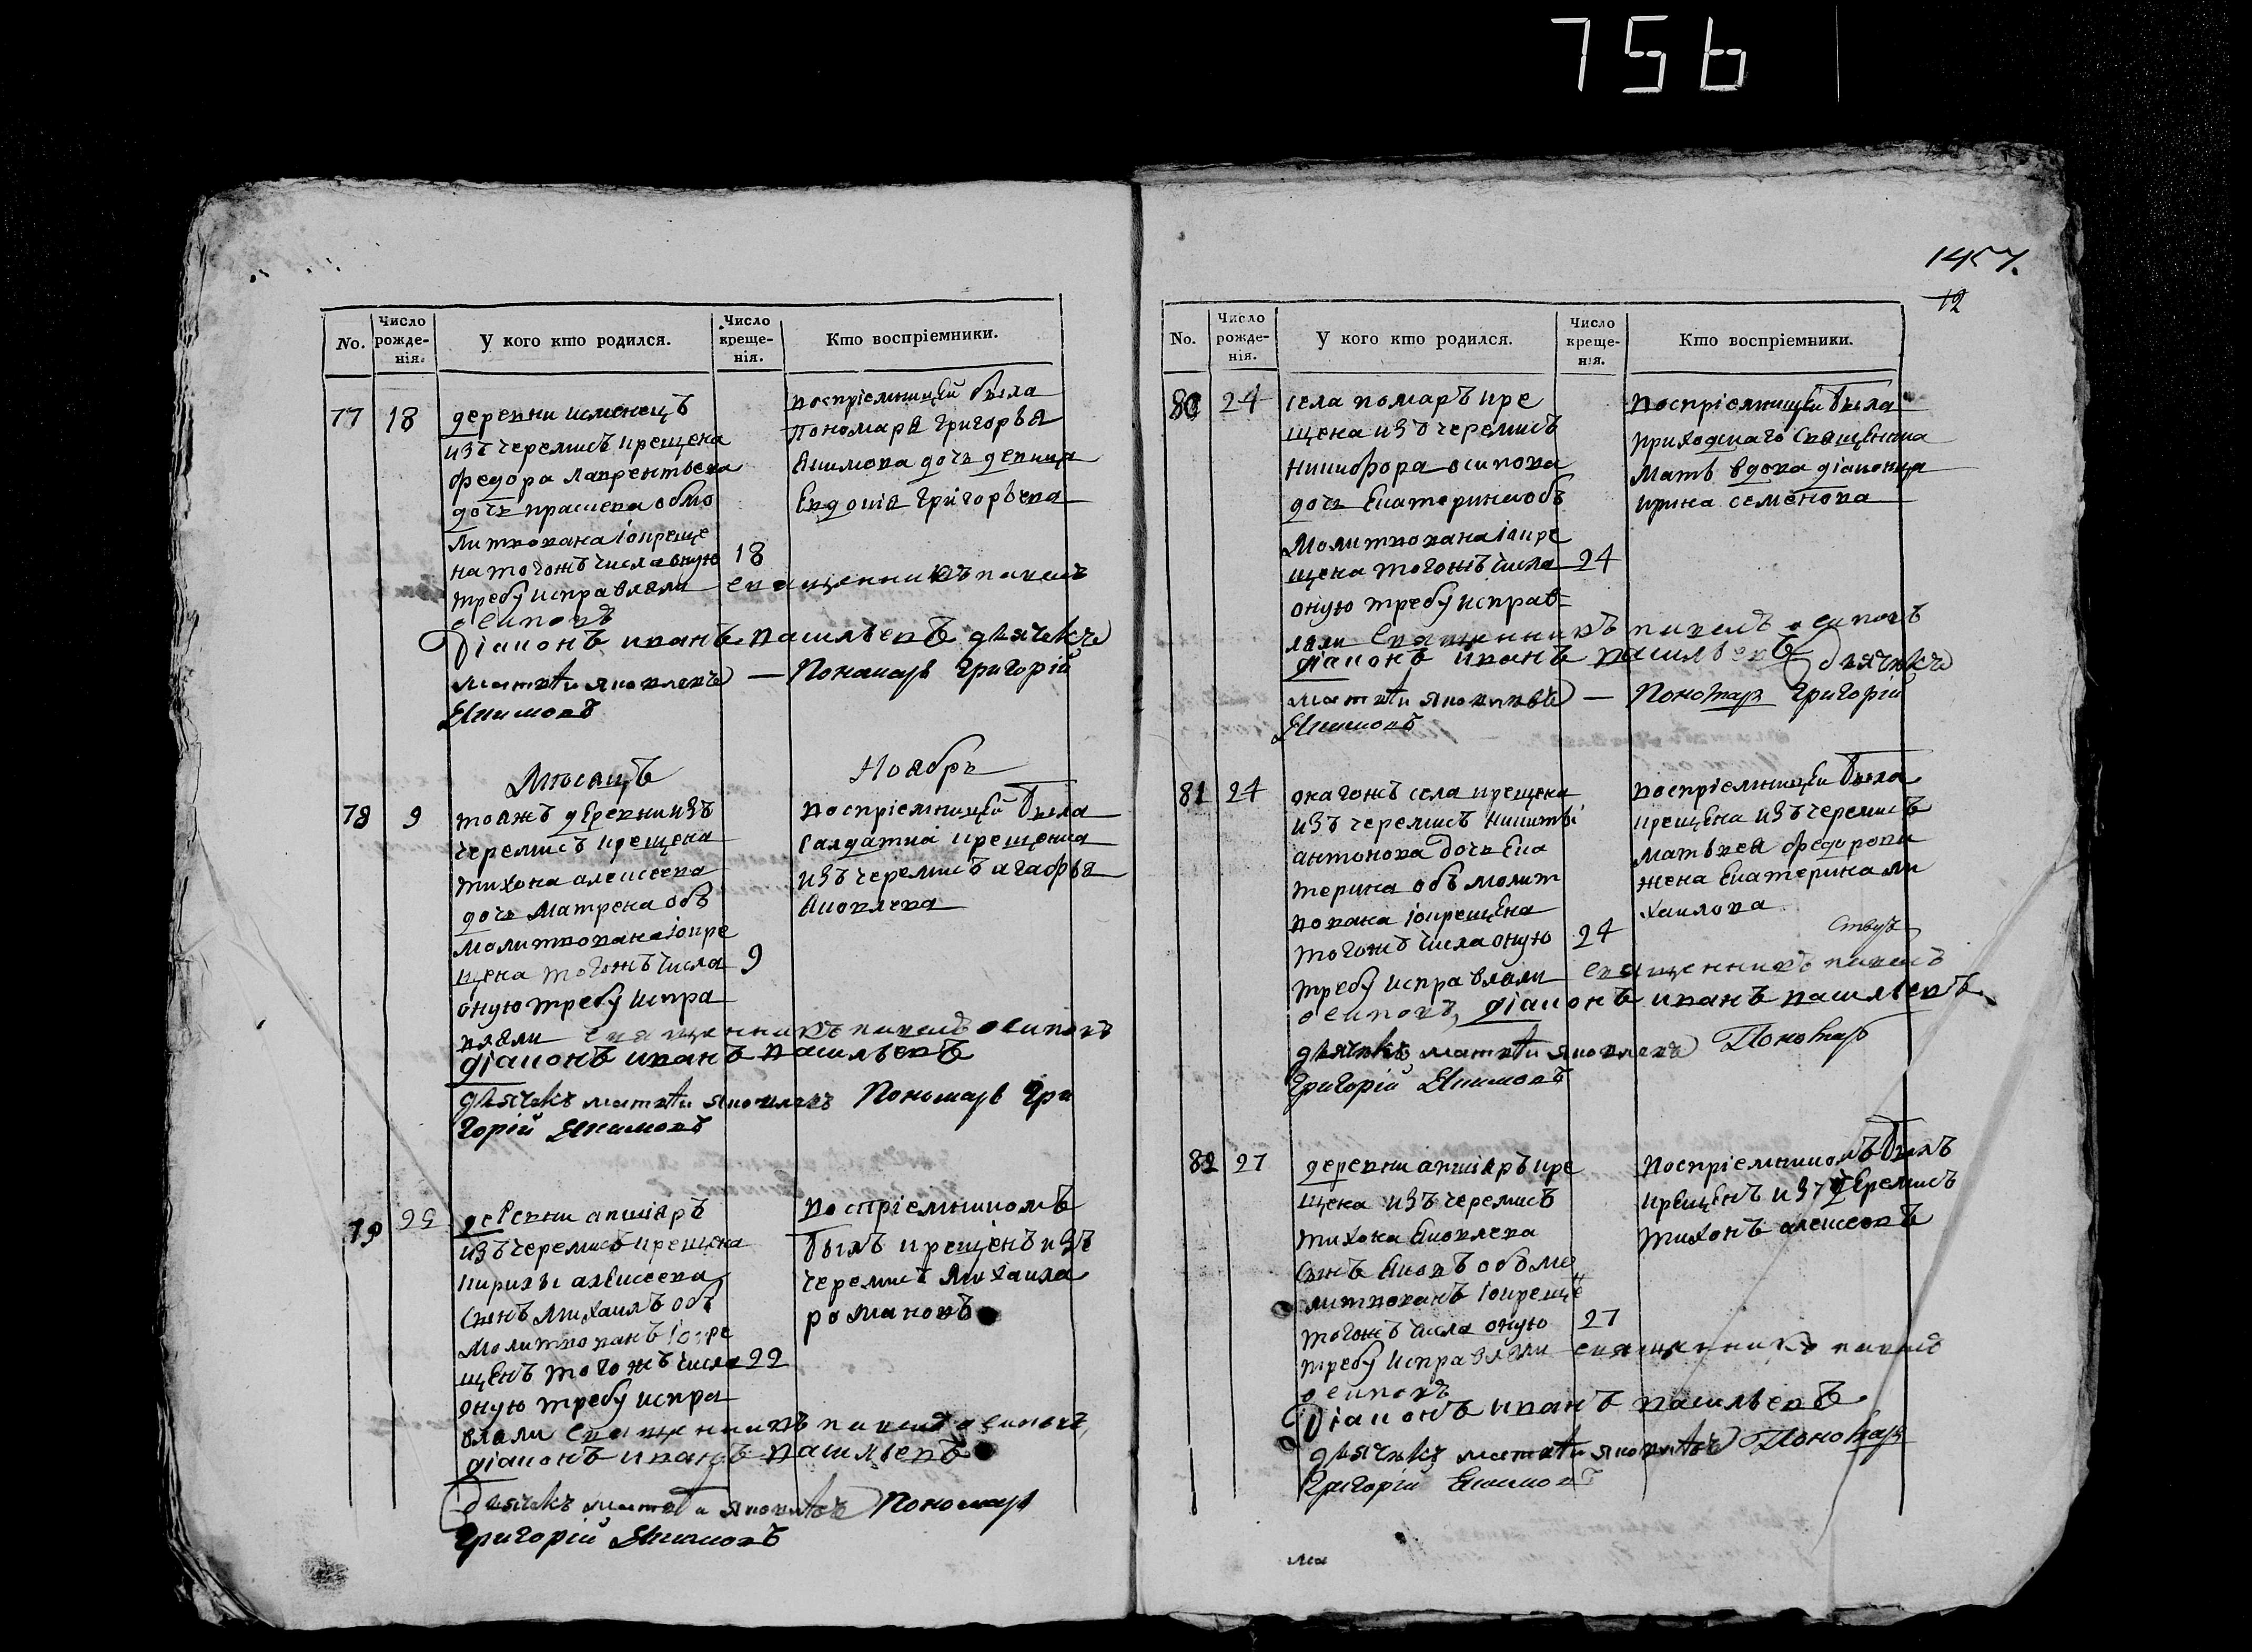 756
1457.
12
No.
Число рожде-нія.
У кого кто родился.
Число креще-нія.
Кто воспріемники.
77
18
деревни исменецъ
изъ черемисъ крещена
федора лаврентьева
дочь праскева обмо
литвована ĭокреще
на тогожъ числа оную
18
требу исправляли священникъ павелъ
осиповъ
Діаконъ иванъ васильевъ дьячекъ
матвѣй яковлевъ — Пономарь Григорій
Екимовъ
воспріемницей была
Пономаря Григорья
Якимова дочь девица
Евдокія Григорьева
Мѣсяцъ
Ноябрь
78
9
тояжъ деревни изъ
черемисъ крещена
тихона алексеева
дочь Матрена объ
молитвована ĭокре
щена тогожъ числа
9
оную требу испра
вляли священникъ павелъ осиповъ
діаконъ иванъ васильевъ
дьячекъ матвѣй яковлевъ Пономарь Гри
горій Екимовъ
воспріемницей была
Салдатка крещенна
изъ черемисъ агафья
Яковлева
79
22
деревни апшіяръ
изъ черемисъ крещена
кирилы алексеева
сынъ Михаилъ объ
молитвованъ ĭокре
щенъ тогожъ числа
22
оную требу испра
вляли священникъ павелъ осиповъ,
діаконъ иванъ васильевъ
дьячекъ матвѣй яковлевъ Пономарь
Григорій Екимовъ
воспріемникомъ
былъ крещенъ изъ
черемисъ Михаила
романовъ
No.
Число рожде-нія.
У кого кто родился.
Число креще-нія.
Кто воспріемники.
80
24
села помаръ кре
щена изъ черемисъ
никифора осипова
дочь Екатерина объ
Молитвована ĭокре
щена тогожъ числа
24
оную требу исправ=
ляли священникъ павелъ осиповъ
діаконъ иванъ васильевъ дьячекъ
матвѣй яковлевъ — Пономарь Григорій
Екимовъ
воспріемницей была
приходскаго Священика
Мать вдова діаконица
ирина семенова
81
24
онагожъ села крещена
изъ черемисъ
антонова дочь Ека
терина объ молит
вована ĭокрещена
тогожъ числа оную
24
требу исправляли священникъ павелъ
осиповъ, діаконъ иванъ васильевъ
дьячекъ матвѣй яковлевъ Пономарь
Григорій Екимовъ
воспріемницей была
крещена изъ черемисъ
Матьвея федорова
жена Екатерина ми
хаилова
82
27
деревни апшіяръ кре
щена изъ черемисъ
тихона Яковлева
сынъ Яковъ обмо
литвованъ ĭокреще
тогожъ числа оную
27
требу исправляли священникъ павелъ
осиповъ
Діаконъ иванъ васильевъ
дьячекъ матвѣй яковлевъ Пономарь
Григорій Екимовъ
воспріемникомъ былъ
крещенъ изъ черемисъ
тихонъ алексеевъ